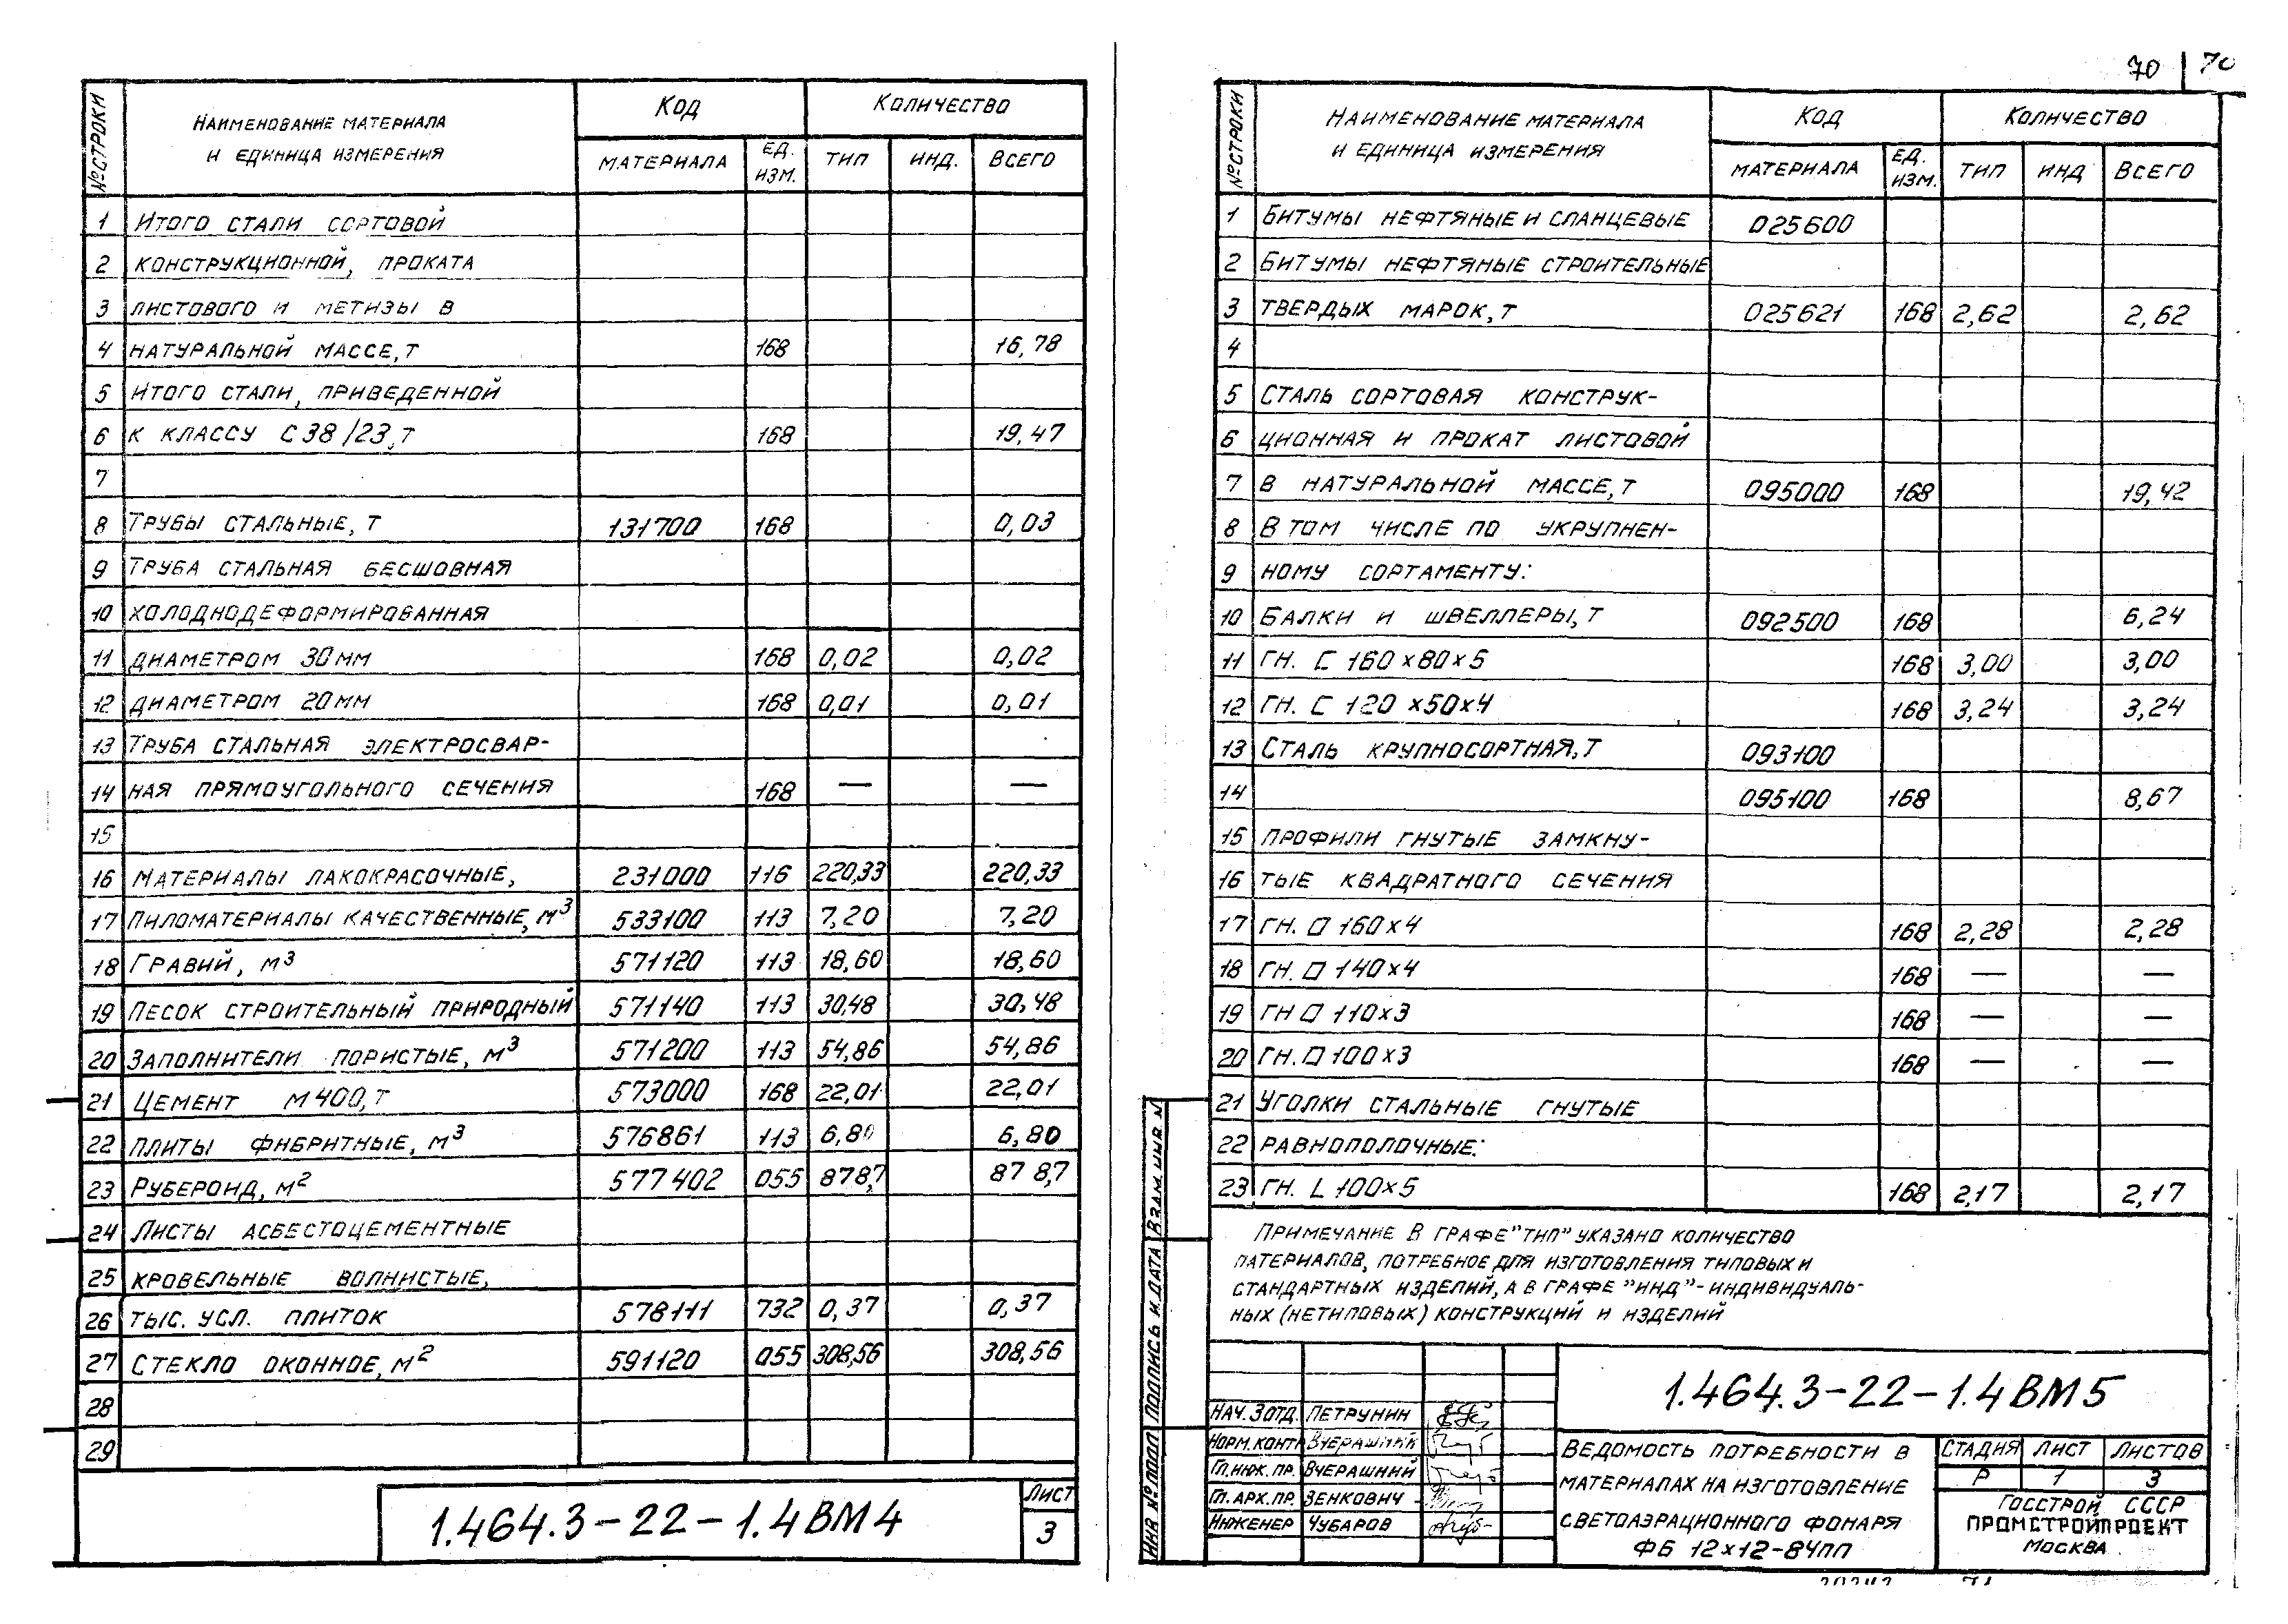 70 | 70
№ СТРОКИ | НАИМЕНОВАНИЕ МАТЕРИАЛА | КОД | КОЛИЧЕСТВО
И ЕДИНИЦА ИЗМЕРЕНИЯ | МАТЕРИАЛА | ЕД. ИЗМ. | ТИП | ИНД. | ВСЕГО
1 ИТОГО СТАЛИ СОРТОВОЙ
2 КОНСТРУКЦИОННОЙ, ПРОКАТА
3 ЛИСТОВОГО И МЕТИЗЫ В
4 НАТУРАЛЬНОЙ МАССЕ, Т 168 16,78
5 ИТОГО СТАЛИ, ПРИВЕДЕННОЙ
6 К КЛАССУ С 38/23, Т 168 19,47
7
8 ТРУБЫ СТАЛЬНЫЕ, Т 131700 168 0,03
9 ТРУБА СТАЛЬНАЯ БЕСШОВНАЯ
10 ХОЛОДНОДЕФОРМИРОВАННАЯ
11 ДИАМЕТРОМ 30 ММ 168 0,02 0,02
12 ДИАМЕТРОМ 20 ММ 168 0,01 0,01
13 ТРУБА СТАЛЬНАЯ ЭЛЕКТРОСВАР-
14 НАЯ ПРЯМОУГОЛЬНОГО СЕЧЕНИЯ 168 — —
15
16 МАТЕРИАЛЫ ЛАКОКРАСОЧНЫЕ, 231000 116 220,33 220,33
17 ПИЛОМАТЕРИАЛЫ КАЧЕСТВЕННЫЕ, М³ 533100 113 7,20 7,20
18 ГРАВИЙ, М³ 571120 113 18,60 18,60
19 ПЕСОК СТРОИТЕЛЬНЫЙ ПРИРОДНЫЙ 571140 113 30,48 30,48
20 ЗАПОЛНИТЕЛИ ПОРИСТЫЕ, М³ 571200 113 54,86 54,86
21 ЦЕМЕНТ М400, Т 573000 168 22,01 22,01
22 ПЛИТЫ ФИБРИТНЫЕ, М³ 576861 113 6,80 6,80
23 РУБЕРОИД, М² 577402 055 878,7 878,7
24 ЛИСТЫ АСБЕСТОЦЕМЕНТНЫЕ
25 КРОВЕЛЬНЫЕ ВОЛНИСТЫЕ,
26 ТЫС. УСЛ. ПЛИТОК 578111 732 0,37 0,37
27 СТЕКЛО ОКОННОЕ, М² 591120 055 308,56 308,56
28
29
1.464.3-22-1.4ВМ4
ЛИСТ
3
№ СТРОКИ | НАИМЕНОВАНИЕ МАТЕРИАЛА | КОД | КОЛИЧЕСТВО
И ЕДИНИЦА ИЗМЕРЕНИЯ | МАТЕРИАЛА | ЕД. ИЗМ. | ТИП | ИНД | ВСЕГО
1 БИТУМЫ НЕФТЯНЫЕ И СЛАНЦЕВЫЕ 025600
2 БИТУМЫ НЕФТЯНЫЕ СТРОИТЕЛЬНЫЕ
3 ТВЕРДЫХ МАРОК, Т 025621 168 2,62 2,62
4
5 СТАЛЬ СОРТОВАЯ КОНСТРУК-
6 ЦИОННАЯ И ПРОКАТ ЛИСТОВОЙ
7 В НАТУРАЛЬНОЙ МАССЕ, Т 095000 168 19,42
8 В ТОМ ЧИСЛЕ ПО УКРУПНЕН-
9 НОМУ СОРТАМЕНТУ:
10 БАЛКИ И ШВЕЛЛЕРЫ, Т 092500 168 6,24
11 ГН. С 160×80×5 168 3,00 3,00
12 ГН. С 120×50×4 168 3,24 3,24
13 СТАЛЬ КРУПНОСОРТНАЯ, Т 093100
14 095100 168 8,67
15 ПРОФИЛИ ГНУТЫЕ ЗАМКНУ-
16 ТЫЕ КВАДРАТНОГО СЕЧЕНИЯ
17 ГН. □ 160×4 168 2,28 2,28
18 ГН. □ 140×4 168 — —
19 ГН □ 110×3 168 — —
20 ГН. □ 100×3 168 — —
21 УГОЛКИ СТАЛЬНЫЕ ГНУТЫЕ
22 РАВНОПОЛОЧНЫЕ:
23 ГН. L 100×5 168 2,17 2,17
ПРИМЕЧАНИЕ В ГРАФЕ "ТИП" УКАЗАНО КОЛИЧЕСТВО
МАТЕРИАЛОВ, ПОТРЕБНОЕ ДЛЯ ИЗГОТОВЛЕНИЯ ТИПОВЫХ И
СТАНДАРТНЫХ ИЗДЕЛИЙ, А В ГРАФЕ "ИНД" - ИНДИВИДУАЛЬ-
НЫХ (НЕТИПОВЫХ) КОНСТРУКЦИЙ И ИЗДЕЛИЙ
ИНВ № ПОДЛ ПОДПИСЬ И ДАТА ВЗАМ. ИНВ. N
НАЧ. 3 ОТД. ПЕТРУНИН
НОРМ. КОНТР ВЧЕРАШНИЙ
ГЛ. ИНЖ. ПР. ВЧЕРАШНИЙ
ГЛ. АРХ. ПР. ЗЕНКОВИЧ
ИНЖЕНЕР ЧУБАРОВ
1.464.3-22-1.4ВМ5
ВЕДОМОСТЬ ПОТРЕБНОСТИ В
МАТЕРИАЛАХ НА ИЗГОТОВЛЕНИЕ
СВЕТОАЭРАЦИОННОГО ФОНАРЯ
ФБ 12×12-84ПП
СТАДИЯ ЛИСТ ЛИСТОВ
Р 1 3
ГОССТРОЙ СССР
ПРОМСТРОЙПРОЕКТ
МОСКВА